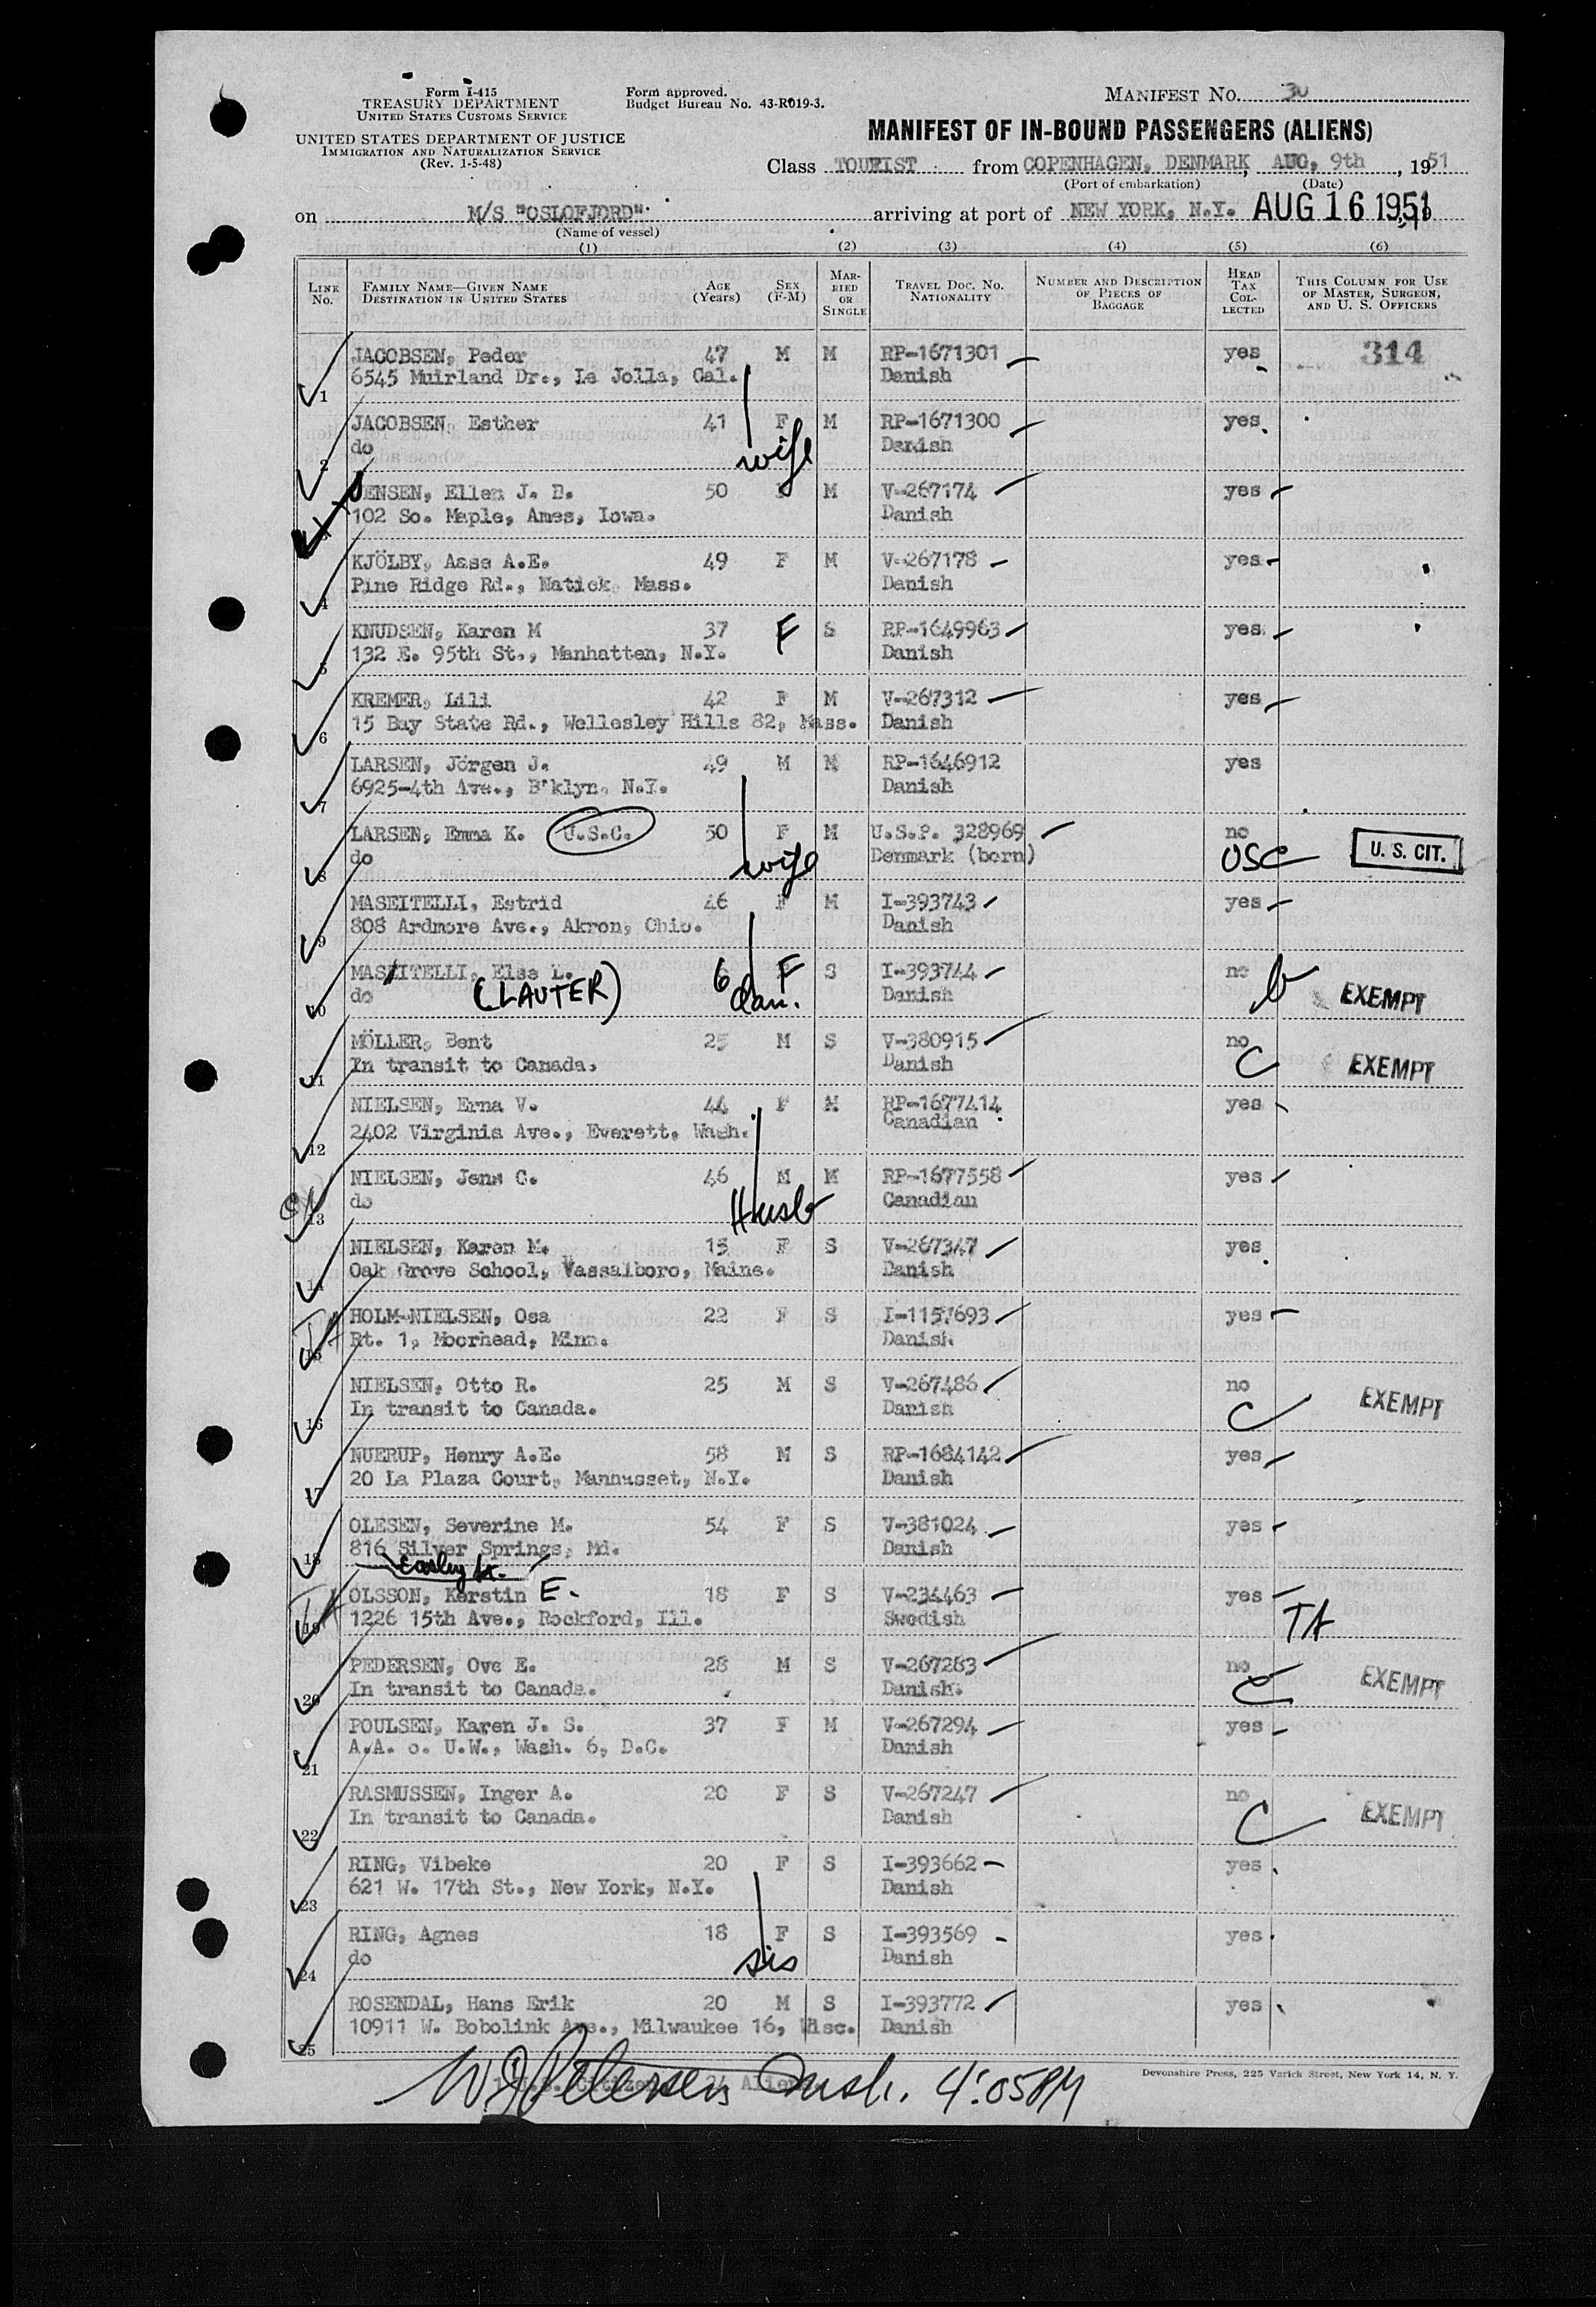 Form I-415
TREASURY DEPARTMENT
UNITED STATES CUSTOMS SERVICE
UNITED STATES DEPARTMENT OF JUSTICE
IMMIGRATION AND NATURALIZATION SERVICE
(Rev. 1-5-48)
Form approved.
Budget Bureau No. 43-R019-3.
MANIFEST NO. 30
MANIFEST OF IN-BOUND PASSENGERS (ALIENS)
Class TOURIST from COPENHAGEN, DENMARK, AUG, 9th, 1951
(Port of embarkation) (Date)
on M/S "OSLOFJORD" arriving at port of NEW YORK, N.Y. AUG 16 1951
(Name of vessel)
(1) (2) (3) (4) (5) (6)
LINE NO. FAMILY NAME—GIVEN NAME DESTINATION IN UNITED STATES AGE (Years) SEX (F-M) MARRIED OR SINGLE TRAVEL DOC. NO. NATIONALITY NUMBER AND DESCRIPTION OF PIECES OF BAGGAGE HEAD TAX COLLECTED THIS COLUMN FOR USE OF MASTER, SURGEON, AND U. S. OFFICERS
JACOBSEN, Peder 47 M M RP-1671301 yes 314
1 6545 Muirland Dr., La Jolla, Cal. Danish
JACOBSEN, Esther 41 F M RP-1671300 yes
2 do wife Danish
JENSEN, Ellen J. B. 50 F M V-267174 yes
3 102 So. Maple, Ames, Iowa. Danish
KJÖLBY, Aase A.E. 49 F M V-267178 yes
4 Pine Ridge Rd., Natick, Mass. Danish
KNUDSEN, Karen M 37 F S RP-1649963 yes
5 132 E. 95th St., Manhatten, N.Y. Danish
KREMER, Lili 42 F M V-267312 yes
6 15 Bay State Rd., Wellesley Hills 82, Mass. Danish
LARSEN, Jörgen J. 49 M M RP-1646912 yes
7 6925-4th Ave., B'klyn, N.Y. Danish
LARSEN, Emma K. U.S.C. 50 F M U.S.P. 328969 no
8 do wife Denmark (born) USC U. S. CIT.
MASEITELLI, Estrid 46 F M I-393743 yes
9 808 Ardmore Ave., Akron, Ohio. Danish
MASEITELLI, Else L. 6 F S I-393744 no
10 do (LAUTER) dau. Danish b EXEMPT
MÖLLER, Bent 25 M S V-380915 no
11 In transit to Canada. Danish C EXEMPT
NIELSEN, Erna V. 44 F M RP-1677414 yes
12 2402 Virginia Ave., Everett, Wash. Canadian
NIELSEN, Jens C. 46 M M RP-1677558 yes
13 do Husb Canadian
NIELSEN, Karen M. 15 F S V-267347 yes
14 Oak Grove School, Vassalboro, Maine. Danish
HOLM-NIELSEN, Osa 22 F S I-1157693 yes
15 Rt. 1, Moorhead, Minn. Danish
NIELSEN, Otto R. 25 M S V-267486 no
16 In transit to Canada. Danish C EXEMPT
NUERUP, Henry A.E. 58 M S RP-1684142 yes
17 20 La Plaza Court, Manhasset, N.Y. Danish
OLESEN, Severine M. 54 F S V-381024 yes
18 816 Silver Springs, Md. Danish
Easley St.
OLSSON, Kerstin E. 18 F S V-234463 yes
19 1226 15th Ave., Rockford, Ill. Swedish TA
PEDERSEN, Ove E. 28 M S V-267283 no
20 In transit to Canada. Danish. C EXEMPT
POULSEN, Karen J. S. 37 F M V-267294 yes
21 A.A. o. U.W., Wash. 6, D.C. Danish
RASMUSSEN, Inger A. 20 F S V-267247 no
22 In transit to Canada. Danish C EXEMPT
RING, Vibeke 20 F S I-393662 yes
23 621 W. 17th St., New York, N.Y. Danish
RING, Agnes 18 F S I-393569 yes
24 do sis Danish
ROSENDAL, Hans Erik 20 M S I-393772 yes
25 10911 W. Bobolink Ave., Milwaukee 16, Wisc. Danish
W J Petersen Insp. 4:05 PM
Devonshire Press, 225 Varick Street, New York 14, N. Y.